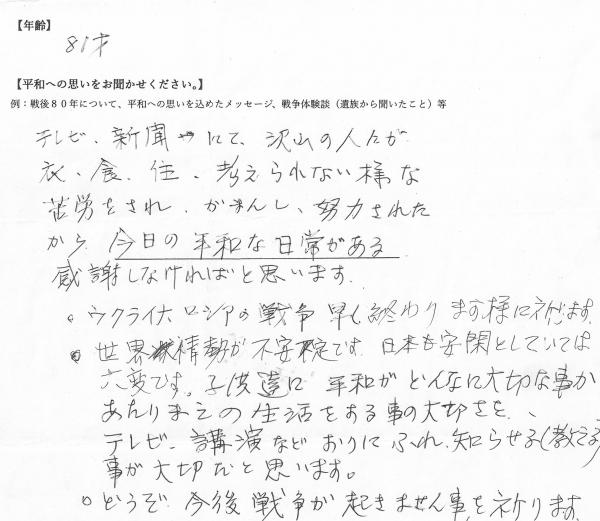 【年齢】
81才
【平和への思いをお聞かせください。】
例：戦後８０年について、平和への思いを込めたメッセージ、戦争体験談（遺族から聞いたこと）等
テレビ、新聞にて、沢山の人々が
衣、食、住、考えられない様な
苦労をされ、がまんし、努力された
から、今日の平和な日常がある
感謝しなければと思います。
ウクライナ、ロシアの戦争早く終わります様に祈ります。
世界情勢が不安定です。日本も安閑としていては
大変です。子供達に平和がどんなに大切な事か
あたりまえの生活をする事の大切さを、
テレビ、講演などおりにふれ、知らせる(教える)
事が大切だと思います。
どうぞ今後戦争が起きません事を祈ります